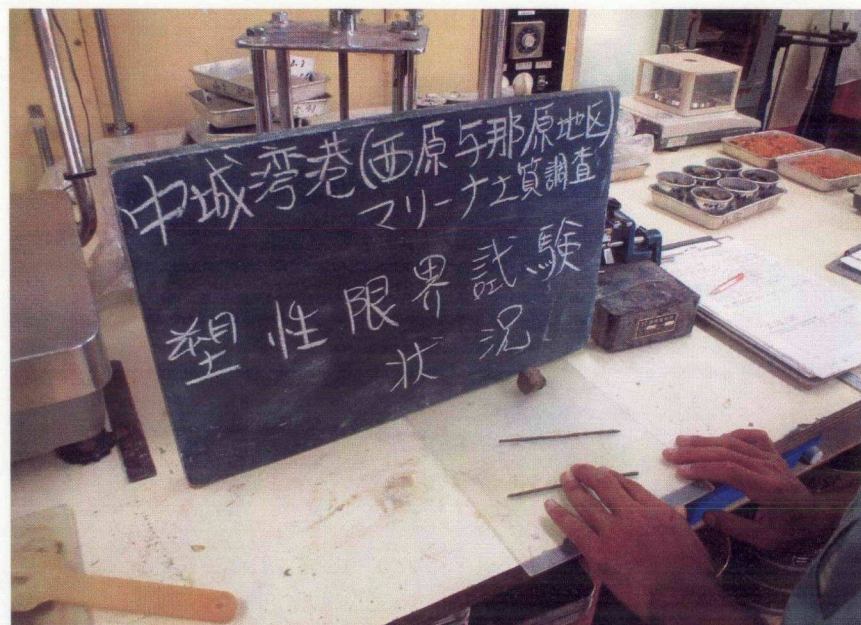 中城湾港(西原与那原地区)
マリーナ土質調査
塑性限界試験
状況